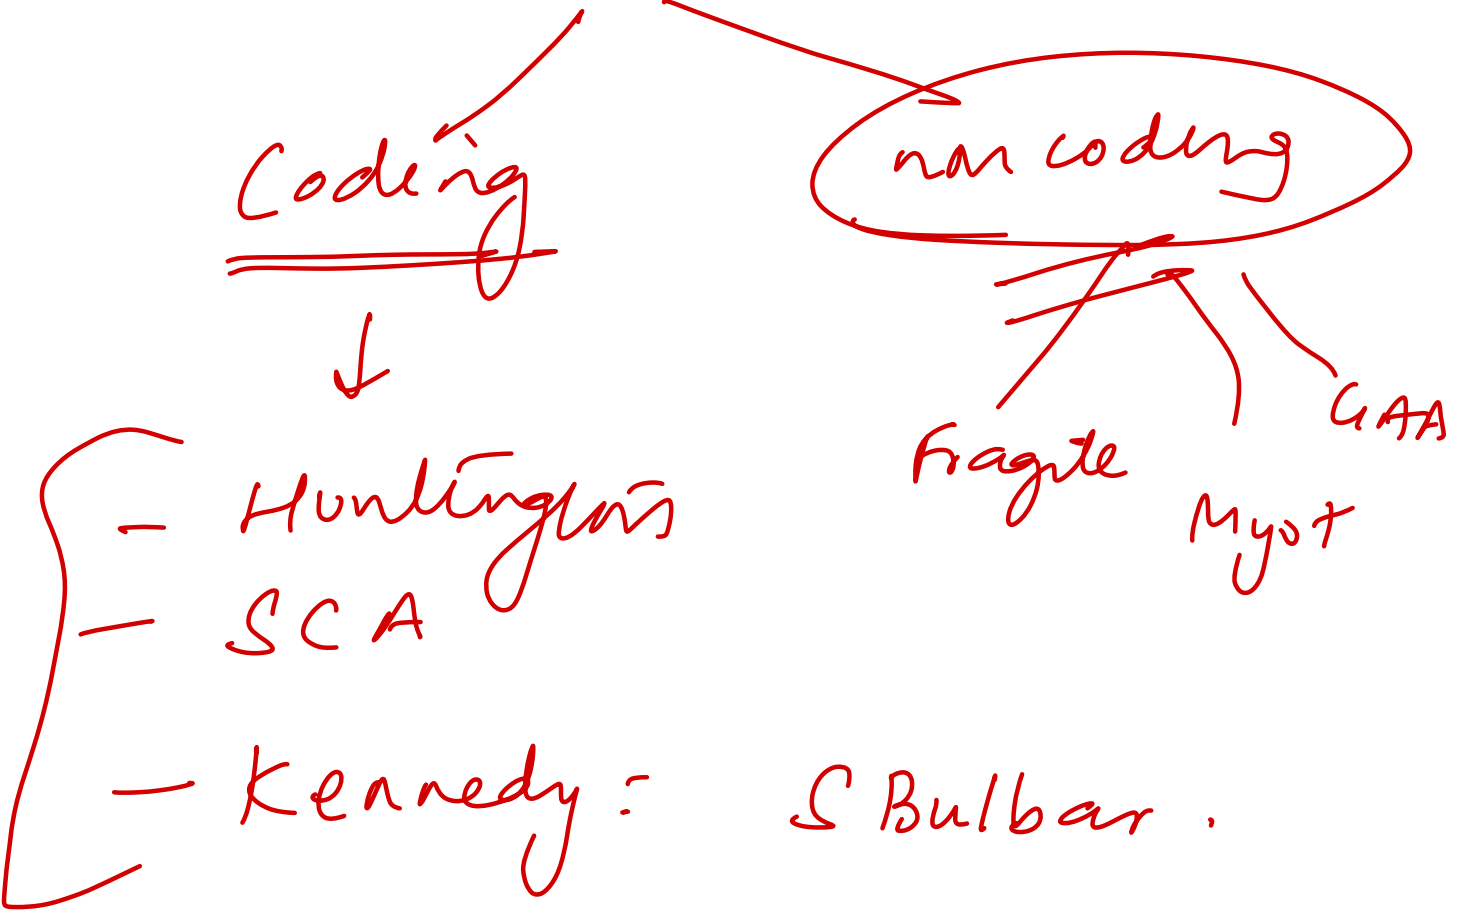 Coding
non coding
Fragile
Myot
GAA
- Huntington's
- SCA
- Kennedy: S Bulbar.